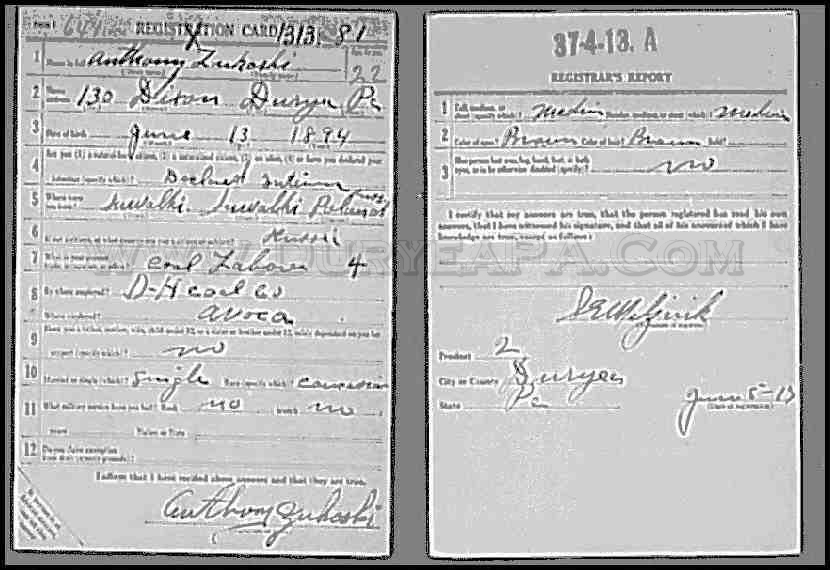 Form 1 641 REGISTRATION CARD 1313 81
1 Name in full Anthony Zukoski Age in yrs. 22
(Given name) (Family name)
2 Home address 130 Dixon Duryea Pa
3 Date of birth June 13 1894
4 Are you (1) a natural-born citizen, (2) a naturalized citizen, (3) an alien, (4) or have you declared your
intention (specify which)? Declared Intention
5 Where were you born? Suwalki Suwalki Poland
6 If not a citizen, of what country are you a citizen or subject? Russia
7 What is your present trade, occupation, or office? Coal Laborer 4
8 By whom employed? D-H coal Co
Where employed? Avoca
9 Have you a father, mother, wife, child under 12, or a sister or brother under 12, solely dependent on you for
support (specify which)? no
10 Married or single (which)? Single Race (specify which)? Caucasian
11 What military service have you had? Rank no branch no
years Nation or State
12 Do you claim exemption from draft (specify grounds)?
I affirm that I have verified above answers and that they are true.
Anthony Zukoski
37-4-13. A
REGISTRAR'S REPORT
1 Tall, medium, or short (specify which)? Medium Slender, medium, or stout (which)? Medium
2 Color of eyes? Brown Color of hair? Brown Bald?
3 Has person lost arm, leg, hand, foot, or both eyes, or is he otherwise disabled (specify)? no
I certify that my answers are true, that the person registered has read his own
answers, that I have witnessed his signature, and that all of his answers of which I have
knowledge are true, except as follows:
WWW.DURYEAPA.COM
(Signature of registrar)
Precinct 2
City or County Duryea
State Pa June 5-17
(Date of registration)